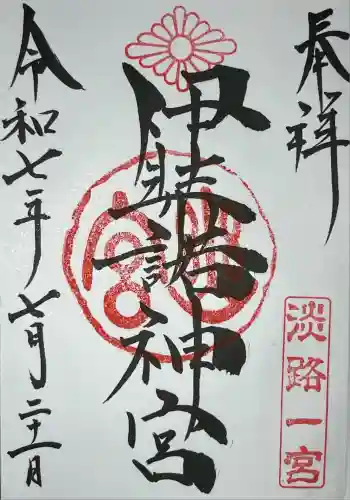 奉祥
淡路一宮
伊弉諾神宮
令和七年七月二十一日